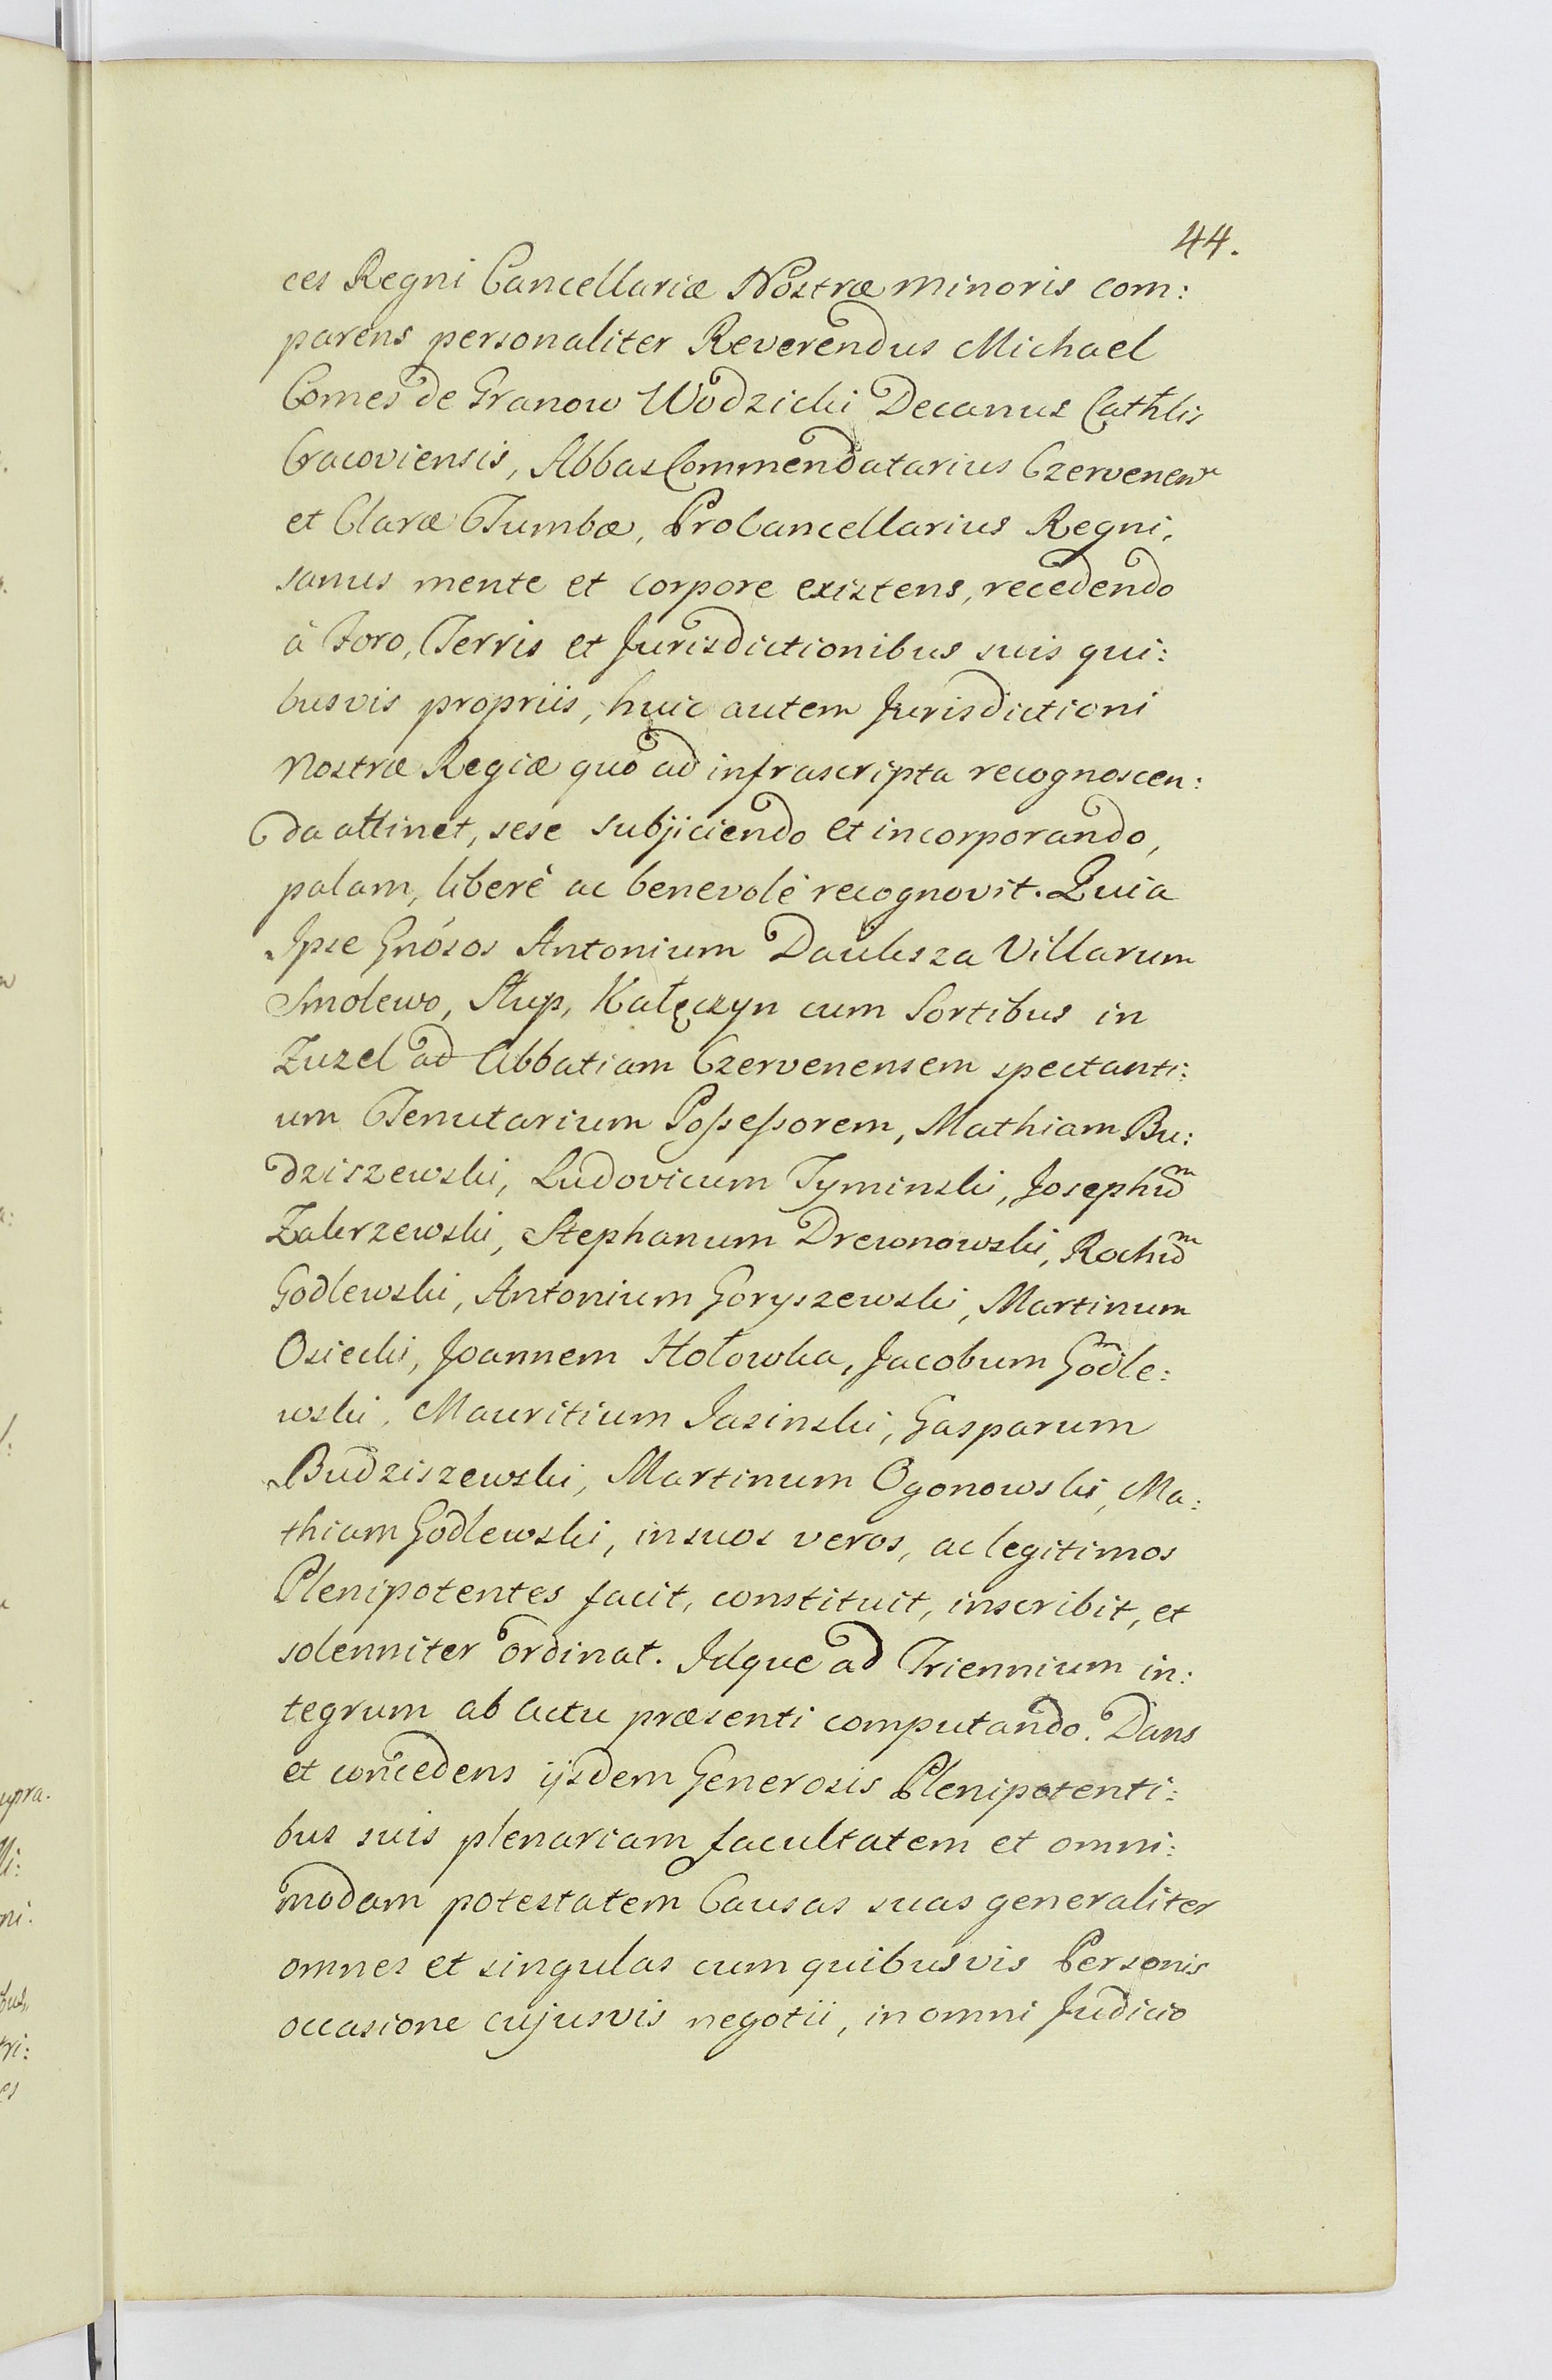 44.
ces Regni Cancellariæ Nostræ Minoris com:
parens personaliter Reverendus Michael
Comes de Granow Wodzicki Decanus Cathlis
Cracoviensis, Abbas Commendatarius Czervenen
et Claræ Tumbæ, ProCancellarius Regni,
sanus mente et corpore existens, recedendo
à Foro, Terris et Jurisdictionibus suis qui:
busvis propriis, huic autem Jurisdictioni
Nostræ Regiæ quo ad infrascripta recognoscen:
da attinet, sese subjiciendo et incorporando,
palam, liberè ac benevolè recognovit. Quia
Ipse Gnosos Antonium Dauksza Villarum
Smolewo, Słup, Kałęczyn cum Sortibus in
Zuzel ad Abbatiam Czervenensem spectanti:
um Tenutarium Possessorem, Mathiam Bu:
dziszewski, Ludovicum Tyminski, Josephum
Zakrzewski, Stephanum Drewnowski, Rochum
Godlewski, Antonium Goryszewski, Martinum
Osiecki, Joannem Hołowka, Jacobum Godle:
wski, Mauritium Jasinski, Gasparum
Budziszewski, Martinum Ogonowski, Ma:
thiam Godlewski, in suos veros, ac legitimos
Plenipotentes facit, constituit, inscribit, et
solenniter ordinat. Idque ad Triennium in:
tegrum ab actu præsenti computando. Dans
et concedens ijsdem Generosis Plenipotenti:
bus suis plenariam facultatem et omni:
modam potestatem Causas suas generaliter
omnes et singulas cum quibusvis Personis
occasione cujusvis negotii, in omni Judicio